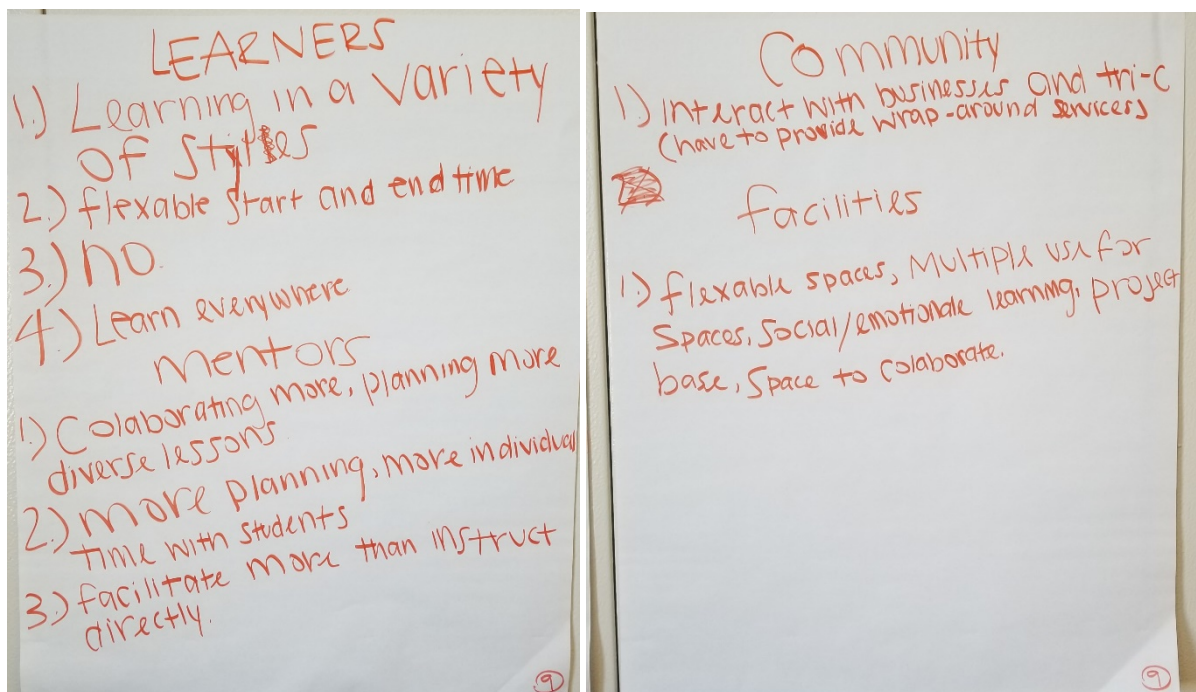 LEARNERS
1.) Learning in a variety
of styles
2.) flexable start and end time
3.) no.
4.) Learn everywhere
mentors
1.) Colaborating more, planning more
diverse lessons
2.) more planning, more individual
time with students
3.) facilitate more than instruct
directly.
9
Community
1.) Interact with businesses and tri-C
(have to provide wrap-around services)
facilities
1.) flexable spaces, Multiple use for
spaces, social/emotionale learning, project
base, space to colaborate.
9